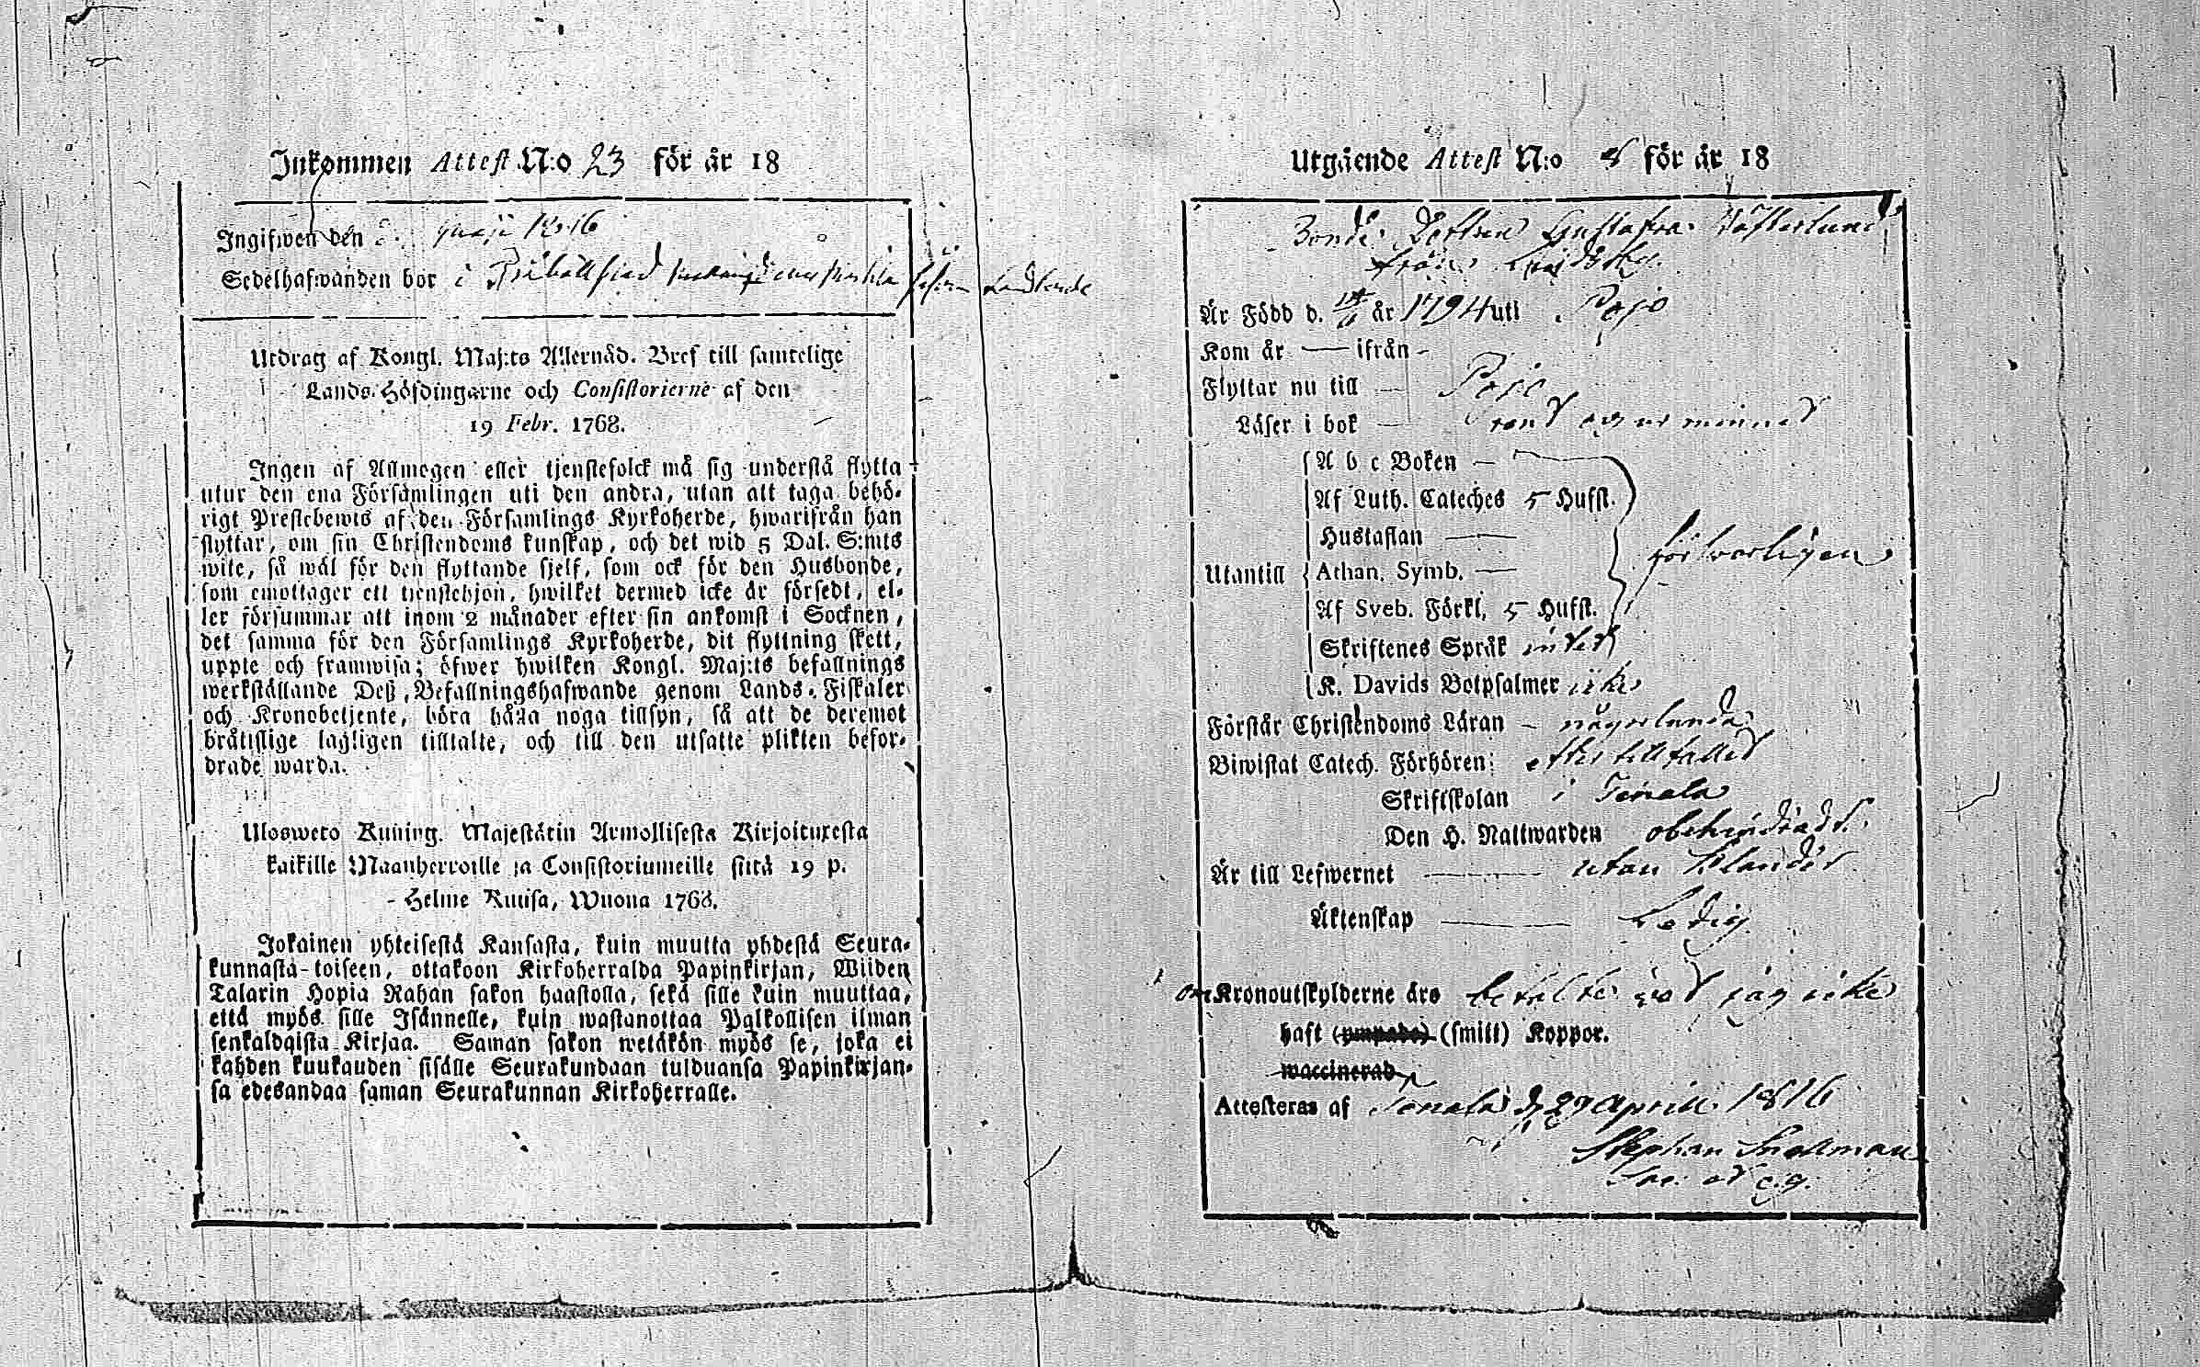 Inkommen Attest N:o 23 för år 18
Ingifwen den 1816
Sedelhafwanden bor i
Utdrag af Kongl. Maj:ts Allernåd. Bref till samtelige
Lands-Höfdingarne och Consistorierne af den
19 Febr. 1768.
Ingen af Allmogen eller tjenstefolck må sig understå flytta
utur den ena Församlingen uti den andra, utan att taga behö-
rigt Prestebewis af den Församlings Kyrkoherde, hwarifrån han
flyttar, om sin Christendoms kunskap, och det wid 5 Dal. S:mts
wite, så wäl för den flyttande sjelf, som ock för den Husbonde,
som emottager ett tjenstehjon, hwilket dermed icke är försedt, el-
ler försummar att inom 2 månader efter sin ankomst i Socknen,
det samma för den Församlings Kyrkoherde, dit flyttning skett,
uppte och framwisa; öfwer hwilken Kongl. Maj:ts befallnings
werkställande Deß Befallningshafwande genom Lands-Fiskaler
och Kronobetjente, böra hålla noga tillsyn, så att de deremot
bråtislige lagligen tilltalte, och till den utsatte plikten befor-
drade warda.
Ulosweto Kuning. Majestätin Armollisesta Kirjoituxesta
kaikille Maanherroille ja Consistoriumeille siitä 19 p.
Helme Kuusa, Wuona 1768.
Jokainen yhteisestä Kansasta, kuin muutta yhdestä Seura-
kunnasta toiseen, ottakoon Kirkoherralda Papinkirjan, Wiiden
Talarin Hopia Rahan sakon haastolla, sekä sille kuin muuttaa,
että myös sille Isännelle, kuin wastanottaa Palkollisen ilman
senkaldaista Kirjaa. Saman sakon wetäkön myös se, joka ei
kahden kuukauden sisälle Seurakundaan tulduansa Papinkirjan-
sa edesandaa saman Seurakunnan Kirkoherralle.
Utgående Attest N:o 8 för år 18
Bonde Gustafva
från
Är Född d. år 1794 uti Pojo
Kom år — ifrån -
Flyttar nu till — Pojo
Läser i bok —
A b c Boken —
Af Luth. Cateches 5 Hufst.
Hustaflan —
Utantill Athan. Symb. — försvarligen
Af Sveb. Förkl. 5 Hufst.
Skriftenes Språk intet
K. Davids Botpsalmer icke
Förstår Christendoms Läran - någorlunda
Biwistat Catech. Förhören: efter tillfället
Skriftskolan i Tenala
Den H. Nattwarden obehindradt
Är till Lefwernet — utan klander
Äktenskap — Ledig
om Kronoutskylderne äro betalte vet jag icke
haft (smitt) Koppor.
waccinerad
Attesteras af Tenala d. 27 Aprill 1816
Stephan Snellman